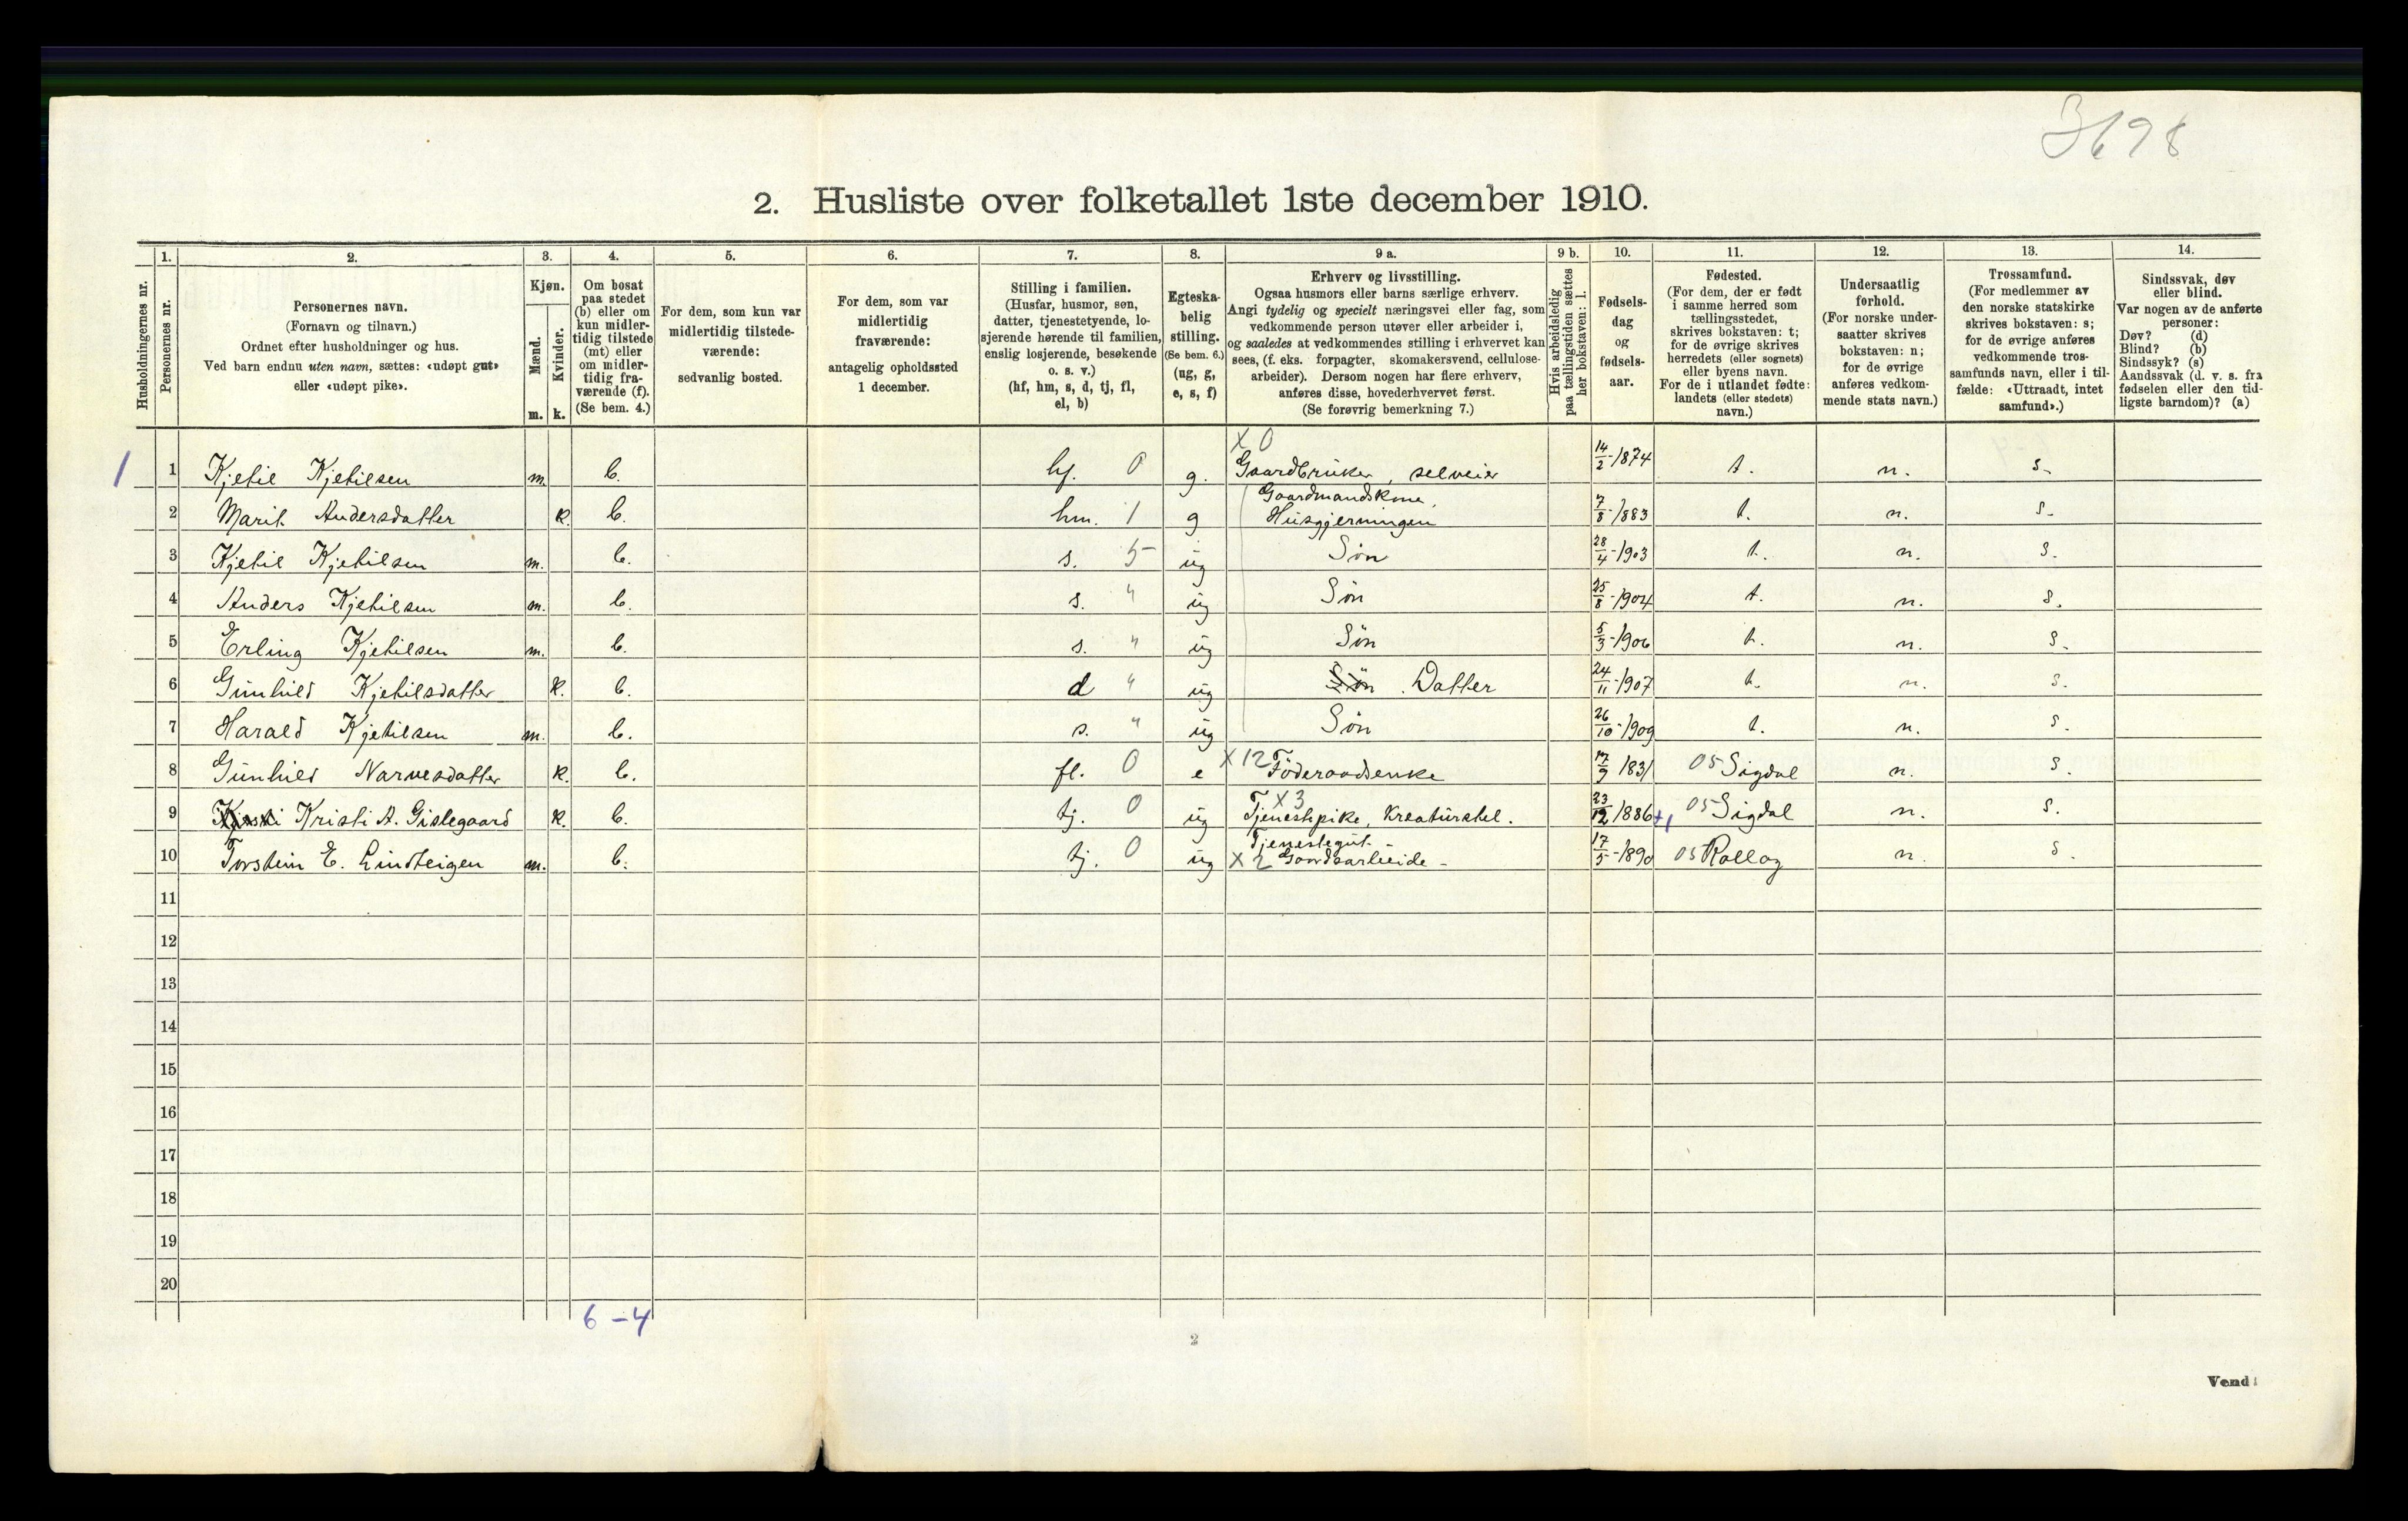 3698
2. Husliste over folketallet 1ste december 1910.
Husholdningernes nr.
1.
Personernes nr.
2.
Personernes navn.
(Fornavn og tilnavn.)
Ordnet efter husholdninger og hus.
Ved barn endnu uten navn, sættes: «udøpt gut»
eller «udøpt pike».
3.
Kjøn.
Mænd.
Kvinder.
m. k.
4.
Om bosat
paa stedet
(b) eller om
kun midler-
tidig tilstede
(mt) eller
om midler-
tidig fra-
værende (f).
(Se bem. 4.)
5.
For dem, som kun var
midlertidig tilstede-
værende:
sedvanlig bosted.
6.
For dem, som var
midlertidig
fraværende:
antagelig opholdssted
1 december.
7.
Stilling i familien.
(Husfar, husmor, søn,
datter, tjenestetyende, lo-
sjerende hørende til familien,
enslig losjerende, besøkende
o. s. v.)
(hf, hm, s, d, tj, fl,
el, b)
8.
Egteska-
belig
stilling.
(Se bem. 6.)
(ug, g,
e, s, f)
9 a.
Erhverv og livsstilling.
Ogsaa husmors eller barns særlige erhverv.
Angi tydelig og specielt næringsvei eller fag, som
vedkommende person utøver eller arbeider i,
og saaledes at vedkommendes stilling i erhvervet kan
sees, (f. eks. forpagter, skomakersvend, cellulose-
arbeider). Dersom nogen har flere erhverv,
anføres disse, hovederhvervet først.
(Se forøvrig bemerkning 7.)
9 b.
Hvis arbeidsledig
paa tællingstiden sættes
her bokstaven: l.
10.
Fødsels-
dag
og
fødsels-
aar.
11.
Fødested.
(For dem, der er født
i samme herred som
tællingsstedet,
skrives bokstaven: t;
for de øvrige skrives
herredets (eller sognets)
eller byens navn.
For de i utlandet fødte:
landets (eller stedets)
navn.)
12.
Undersaatlig
forhold.
(For norske under-
saatter skrives
bokstaven: n;
for de øvrige
anføres vedkom-
mende stats navn.)
13.
Trossamfund.
(For medlemmer av
den norske statskirke
skrives bokstaven: s;
for de øvrige anføres
vedkommende tros-
samfunds navn, eller i til-
fælde: «Uttraadt, intet
samfund».)
14.
Sindssvak, døv
eller blind.
Var nogen av de anførte
personer:
Døv? (d)
Blind? (b)
Sindssyk? (s)
Aandssvak (d. v. s. fra
fødselen eller den tid-
ligste barndom)? (a)
X 0
1 1 Kjetil Kjetilsen m. b. hf. 0 g. Gaardbruker, selveier 14/2-1874 t. n. s.
Gaardmandskone,
2 Marit Andersdatter k. b. hm. 1 g Husgjerningen 7/8-1883 t. n. s.
3 Kjetil Kjetilsen m. b. s. 5 ug Søn 28/4-1903 t. n. s.
4 Anders Kjetilsen m. b. s. " ug Søn 25/8-1904 t. n. s.
5 Erling Kjetilsen m. b. s. " ug Søn 5/3-1906 t. n. s.
6 Gunhild Kjetilsdatter k. b. d " ug Søn. Datter 24/11-1907 t. n. s.
7 Harald Kjetilsen m. b. s. " ug Søn 26/10-1909 t. n. s.
8 Gunhild Narvesdatter k. b. fl. 0 e X 12 Föderaadsenke 17/9 1831 05 Sigdal n. s.
X 3
9 Kristi A. Gislegaard k. b. tj. 0 ug Tjenestpike, Kreaturstel. 23/12 1886 +1 05 Sigdal n. s.
Tjenestegut.
10 Torstein E. Lindteigen m. b. tj. 0 ug X 2 Gaardsarbeide - 17/5-1890 05 Rollag n. s.
11
12
13
14
15
16
17
18
19
20
6 - 4
2
Vend!